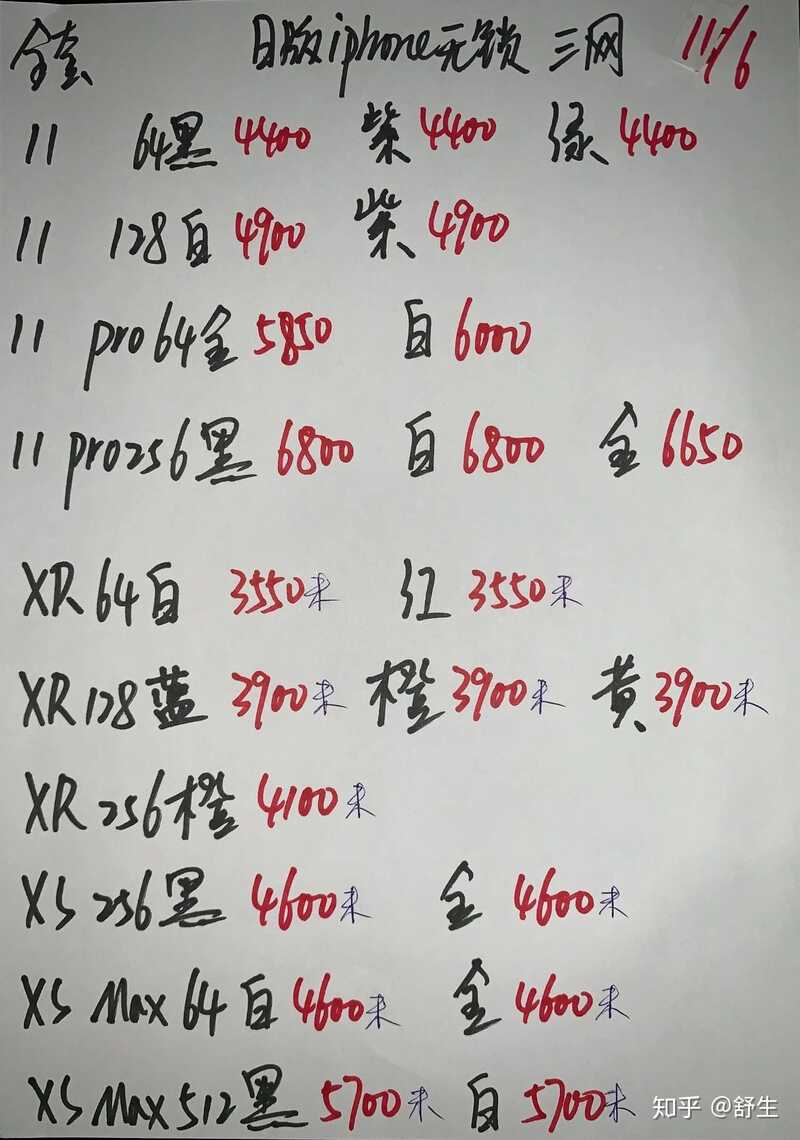 全套 日版iphone无锁 三网 11/6
11 64黑 4400 紫 4400 绿 4400
11 128白 4900 紫 4900
11 pro 64金 5850 白 6000
11 pro256黑 6800 白 6800 金 6650
XR 64白 3550未 红 3550未
XR 128蓝 3900未 橙 3900未 黄 3900未
XR 256橙 4100未
XS 256黑 4600未 金 4600未
XS Max 64白 4600未 金 4600未
XS Max 512黑 5700未 白 5700未
知乎 @舒生